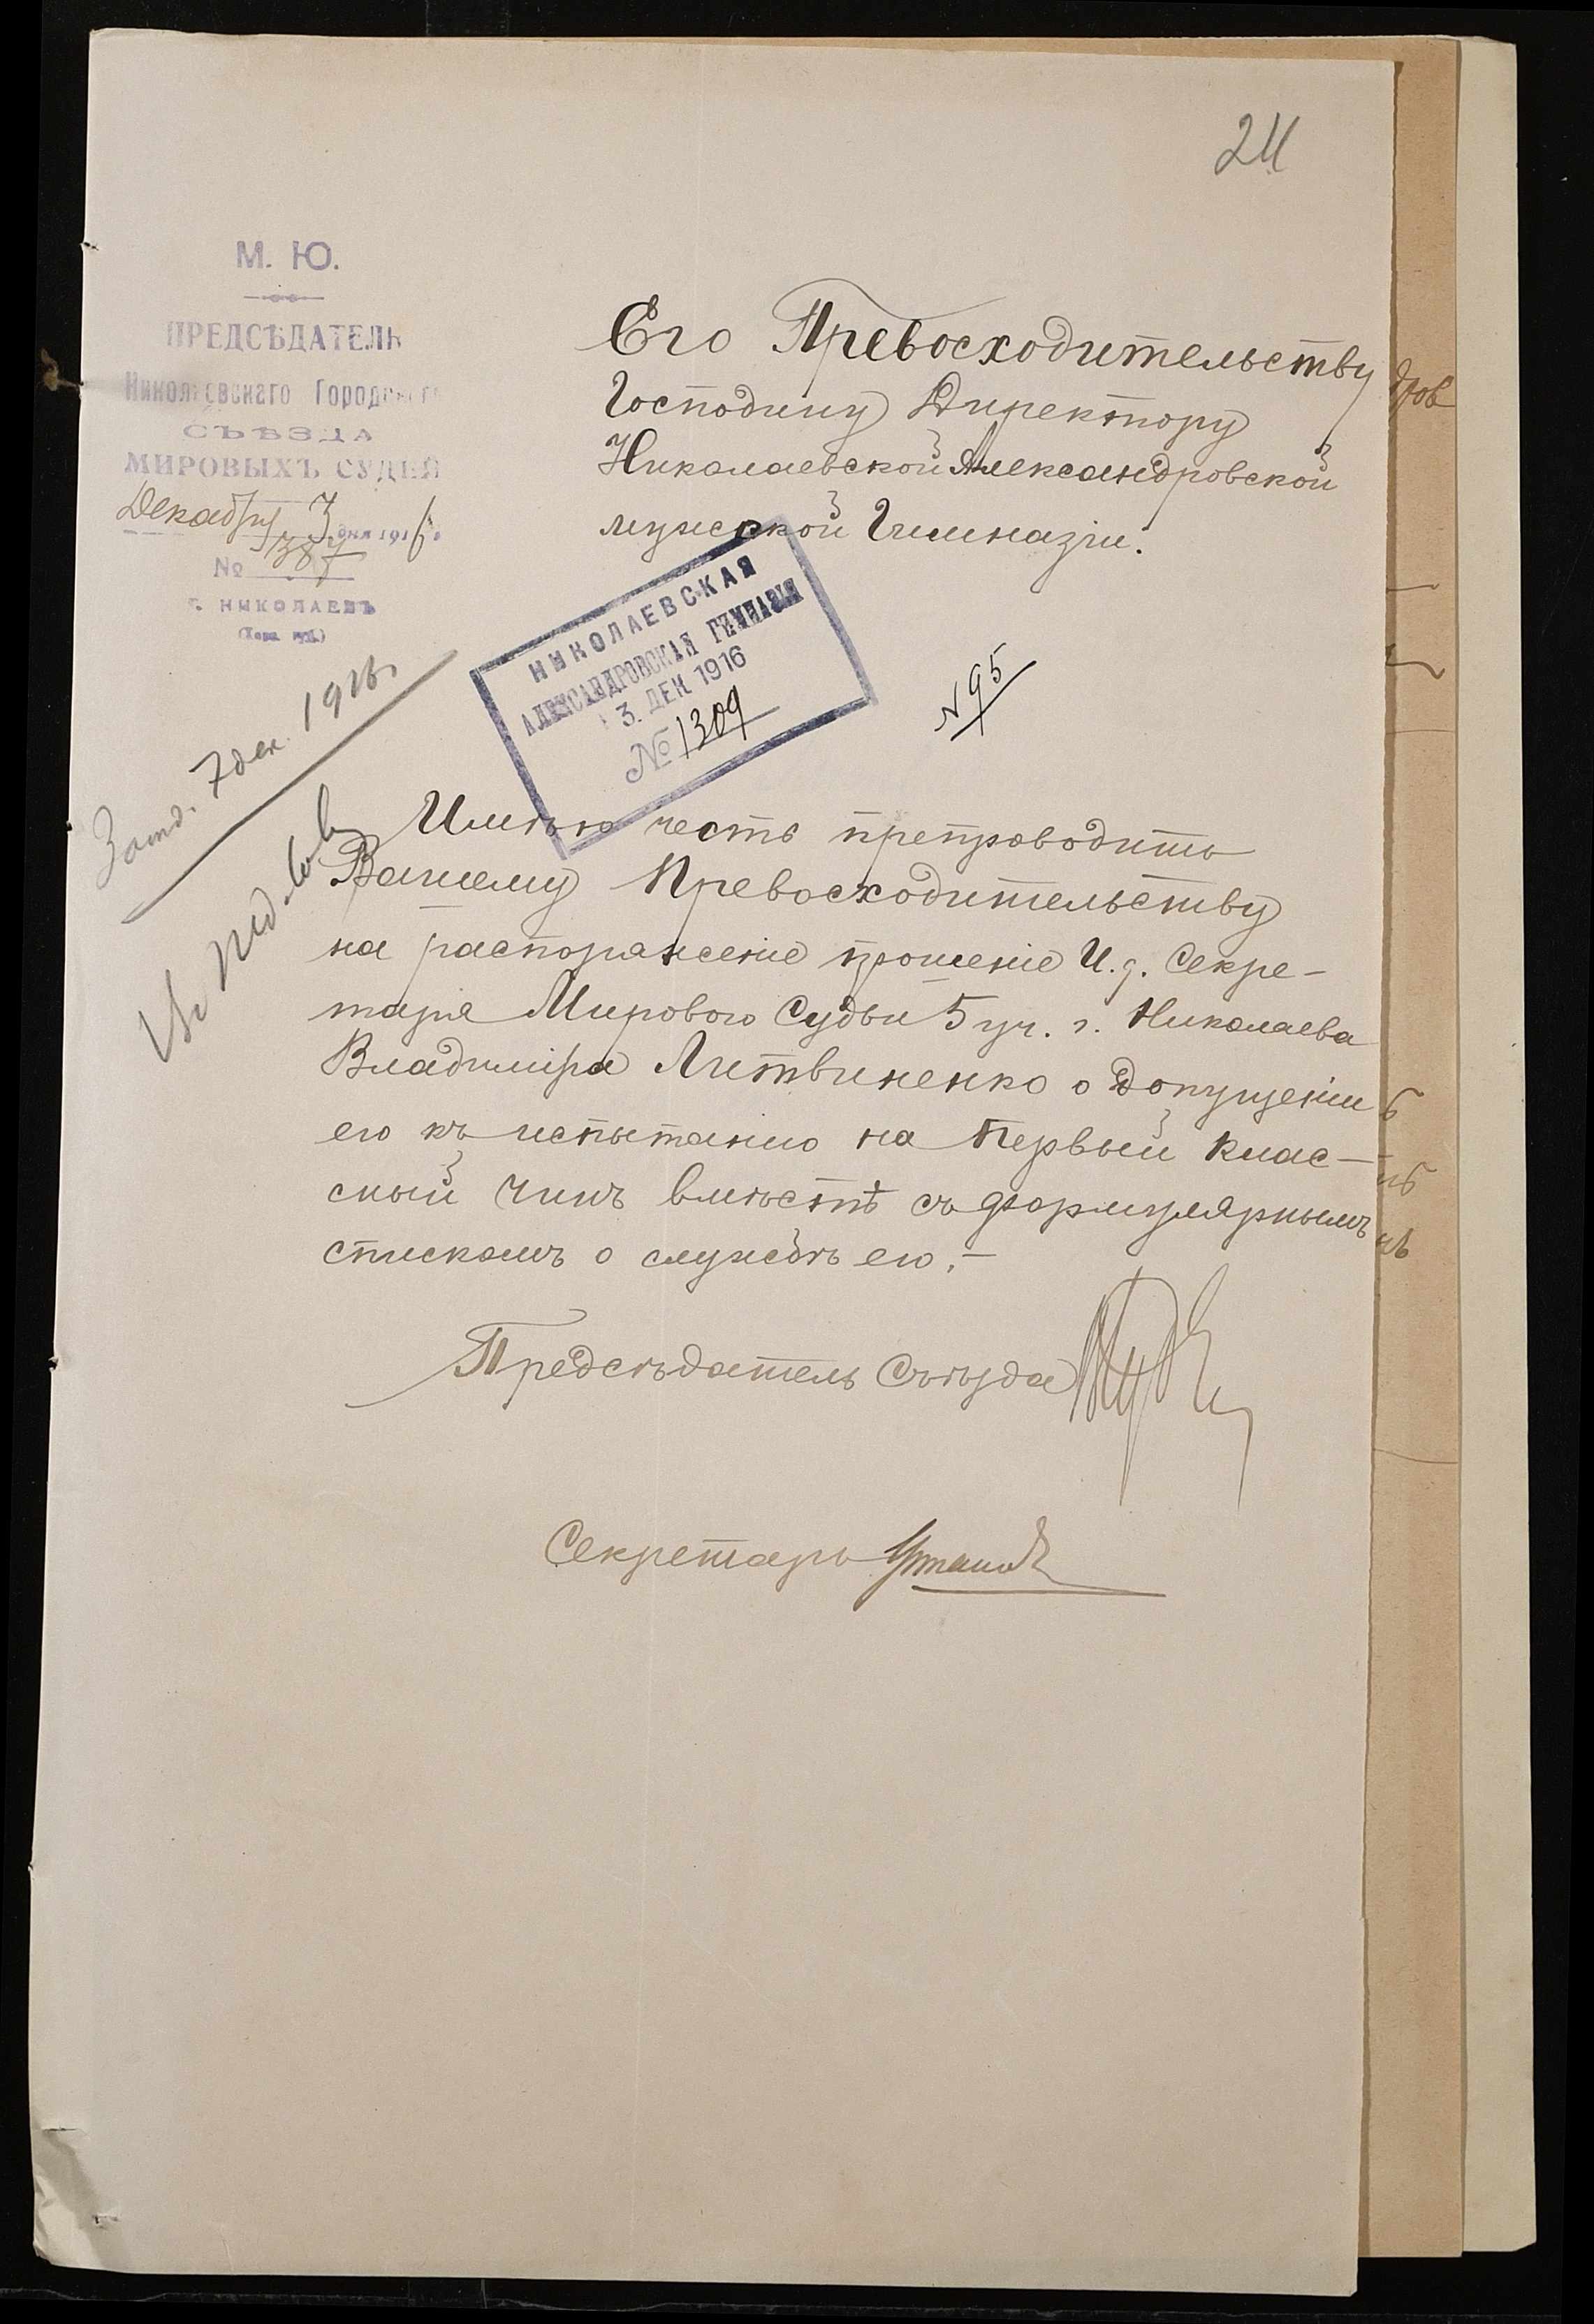 24
М. Ю.
ПРЕДСѢДАТЕЛЬ
Николаевскаго Городского
СЪѢЗДА
МИРОВЫХЪ СУДЕЙ
Декабря 3 дня 1916 г.
№ 1387
г. НИКОЛАЕВЪ
(Херс. губ.)
Его Превосходительству
Господину Директору
Николаевской Александровской
мужской Гимназіи.
НИКОЛАЕВСКАЯ
АЛЕКСАНДРОВСКАЯ ГИМНАЗІЯ
3. ДЕК 1916
№ 1309
N 95
7 дек. 1916
Имѣю честь препроводить
Вашему Превосходительству
на распоряженіе прошеніе И. д. Секре-
таря Мирового Судьи 5 уч. г. Николаева
Владиміра Литвиненко о допущеніи
его къ испытанію на первый клас-
сный чинъ вмѣстѣ съ формулярнымъ
спискомъ о службѣ его.-
Предсѣдатель Съѣзда
Секретарь